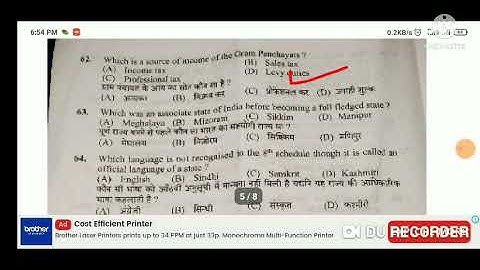 6:54 PM
0.2KB/s
62. Which is a source of income of the Gram Panchayats ?
(A) Income tax (B) Sales tax
(C) Professional tax (D) Levy duties
ग्राम पंचायत के आय का स्रोत कौन सा है ?
(A) आयकर (B) बिक्री कर (C) प्रोफेशनल कर (D) उगाही शुल्क
63. Which was an associate state of India before becoming a full fledged state ?
(A) Meghalaya (B) Mizoram (C) Sikkim (D) Manipur
पूर्ण राज्य बनने से पहले कौन सा भारत का सहयोगी राज्य था ?
(A) मेघालय (B) मिजोरम (C) सिक्किम (D) मणिपुर
64. Which language is not recognised in the 8th schedule though it is called an
official language of a state ?
(A) English (B) Sindhi (C) Sanskrit (D) Kashmiri
कौन सी भाषा को आठवीं अनुसूची में मान्यता नहीं मिली है यद्यपि यह राज्य की आधिकारिक
भाषा कहलाती है ?
(A) अंग्रेजी (B) सिन्धी (C) संस्कृत (D) कश्मीरी
5 / 8
brother
Ad Cost Efficient Printer
Brother Laser Printers prints up to 34 PPM at just 33p. Monochrome Multi-Function Printer
DU RECORDER